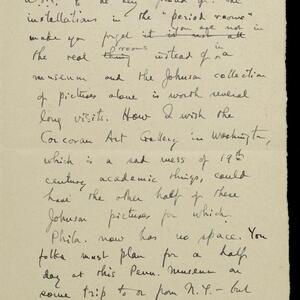 to be very proud of. The
installations in the "period rooms"
make you forget it is not all you are not in
the real thing rooms instead of in a
museum and the Johnson collection
of pictures alone is worth several
long visits. How I wish the
Corcoran Art Gallery in Washington,
which is a sad mess of 19th
century academic things, could
have the other half of these
Johnson pictures for which
Phila. now has no space. You
folks must plan for a half
day at this Penn. Museum on
some trip to or from N.Y. – but